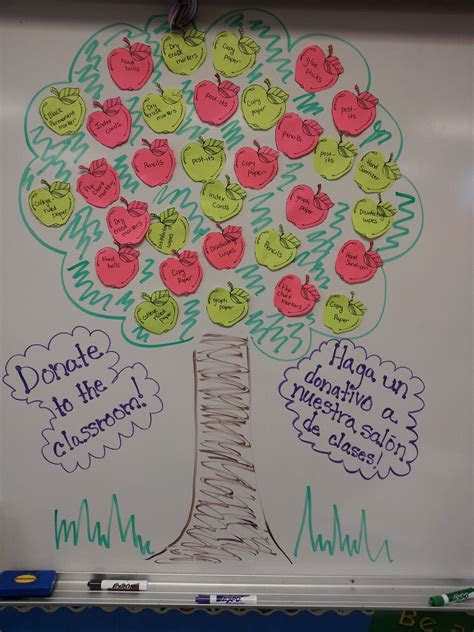 Dry
erase
markers
Copy
Paper
Hand
balls
Glue
sticks
Black
Permanent
marker
Dry
erase
markers
Post-its
Copy
Paper
post-
its
Index
Cards
Pencils
Pencils
post-its
Copy
Paper
Post-
its
Hand
Sanitizer
Flip
Chart
markers
College
ruled
paper
Index
Cards
graph
Paper
Disinfecting
wipes
Dry
erase
markers
Disinfecting
wipes
Disinfecting
wipes
Pencils
Hand
Sanitizer
Hand
balls
Copy
Paper
Flip
Chart
markers
College
ruled
paper
graph
Paper
Copy
Paper
Donate
to the
classroom!
Haga un
donativo a
nuestra salón
de clases.
EXPO
EXPO
Be a